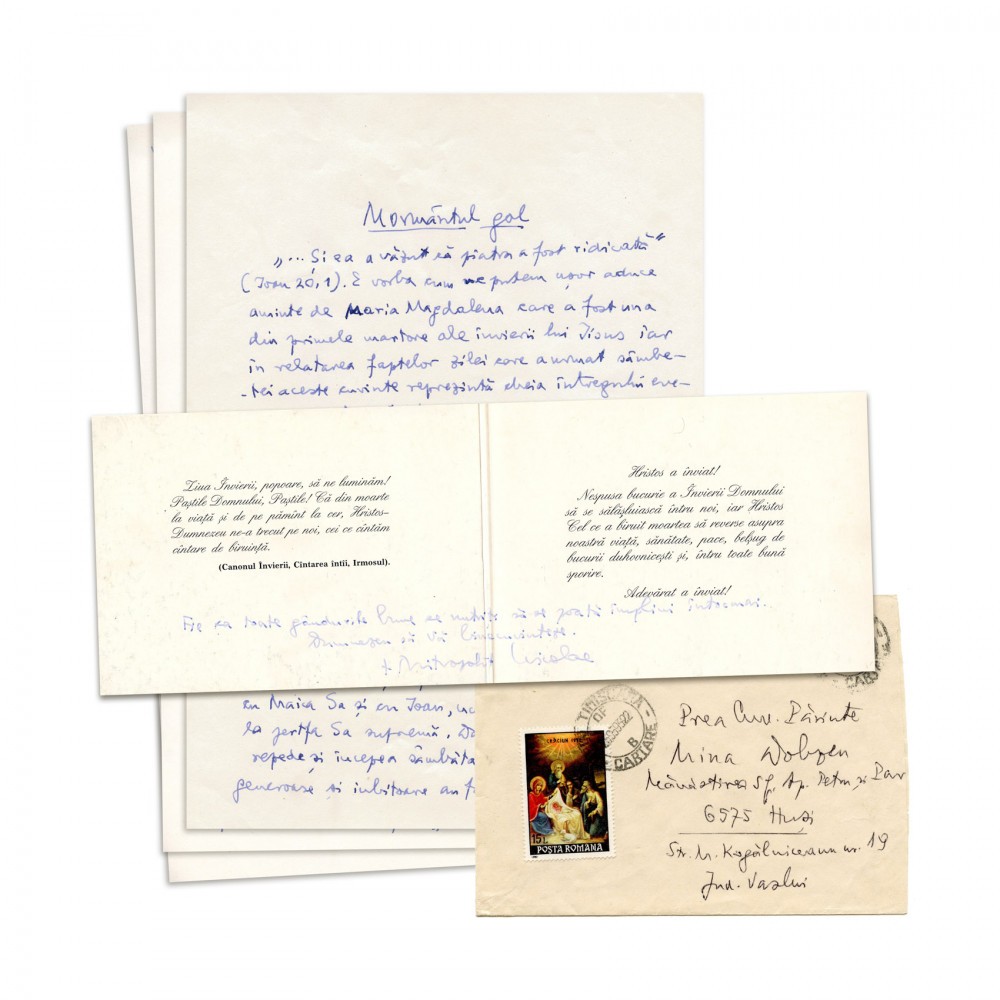 Mormântul gol
„... Și ea a văzut că piatra a fost ridicată"
(Ioan 20,1). E vorba cum ne putem ușor aduce
aminte de Maria Magdalena care a fost una
din primele martore ale învierii lui Iisus iar
în relatarea faptelor zilei care a urmat sâmbe-
-tei aceste cuvinte reprezintă cheia întregului eve-
Ziua Învierii, popoare, să ne luminăm!
Paștile Domnului, Paștile! Că din moarte
la viață și de pe pămînt la cer, Hristos-
Dumnezeu ne-a trecut pe noi, cei ce cîntăm
cîntare de biruință.
(Canonul Învierii, Cîntarea întîi, Irmosul).
Hristos a înviat!
Nespusa bucurie a Învierii Domnului
să se sălășluiască întru noi, iar Hristos
Cel ce a biruit moartea să reverse asupra
noastră viață, sănătate, pace, belșug de
bucurii duhovnicești și, întru toate bună
sporire.
Adevărat a înviat!
Fie ca toate gândurile bune ce nutriți să se poată împlini întocmai.
Dumnezeu să Vă binecuvinteze.
+ Mitropolit Nicolae
cu Maica Sa și cu Ioan,
la jertfa Sa supremă,
repede și începea sâmbăta
generoase și iubitoare au
TIMIȘOARA
OF
B
CARTARE
CRĂCIUN
15L
POSTA ROMANA
Prea Cuv. Părinte
Mina Dobzeu
Mănăstirea Sf. Ap. Petru și Pavel
6575 Huși
Str. M. Kogălniceanu nr. 19
Jud. Vaslui